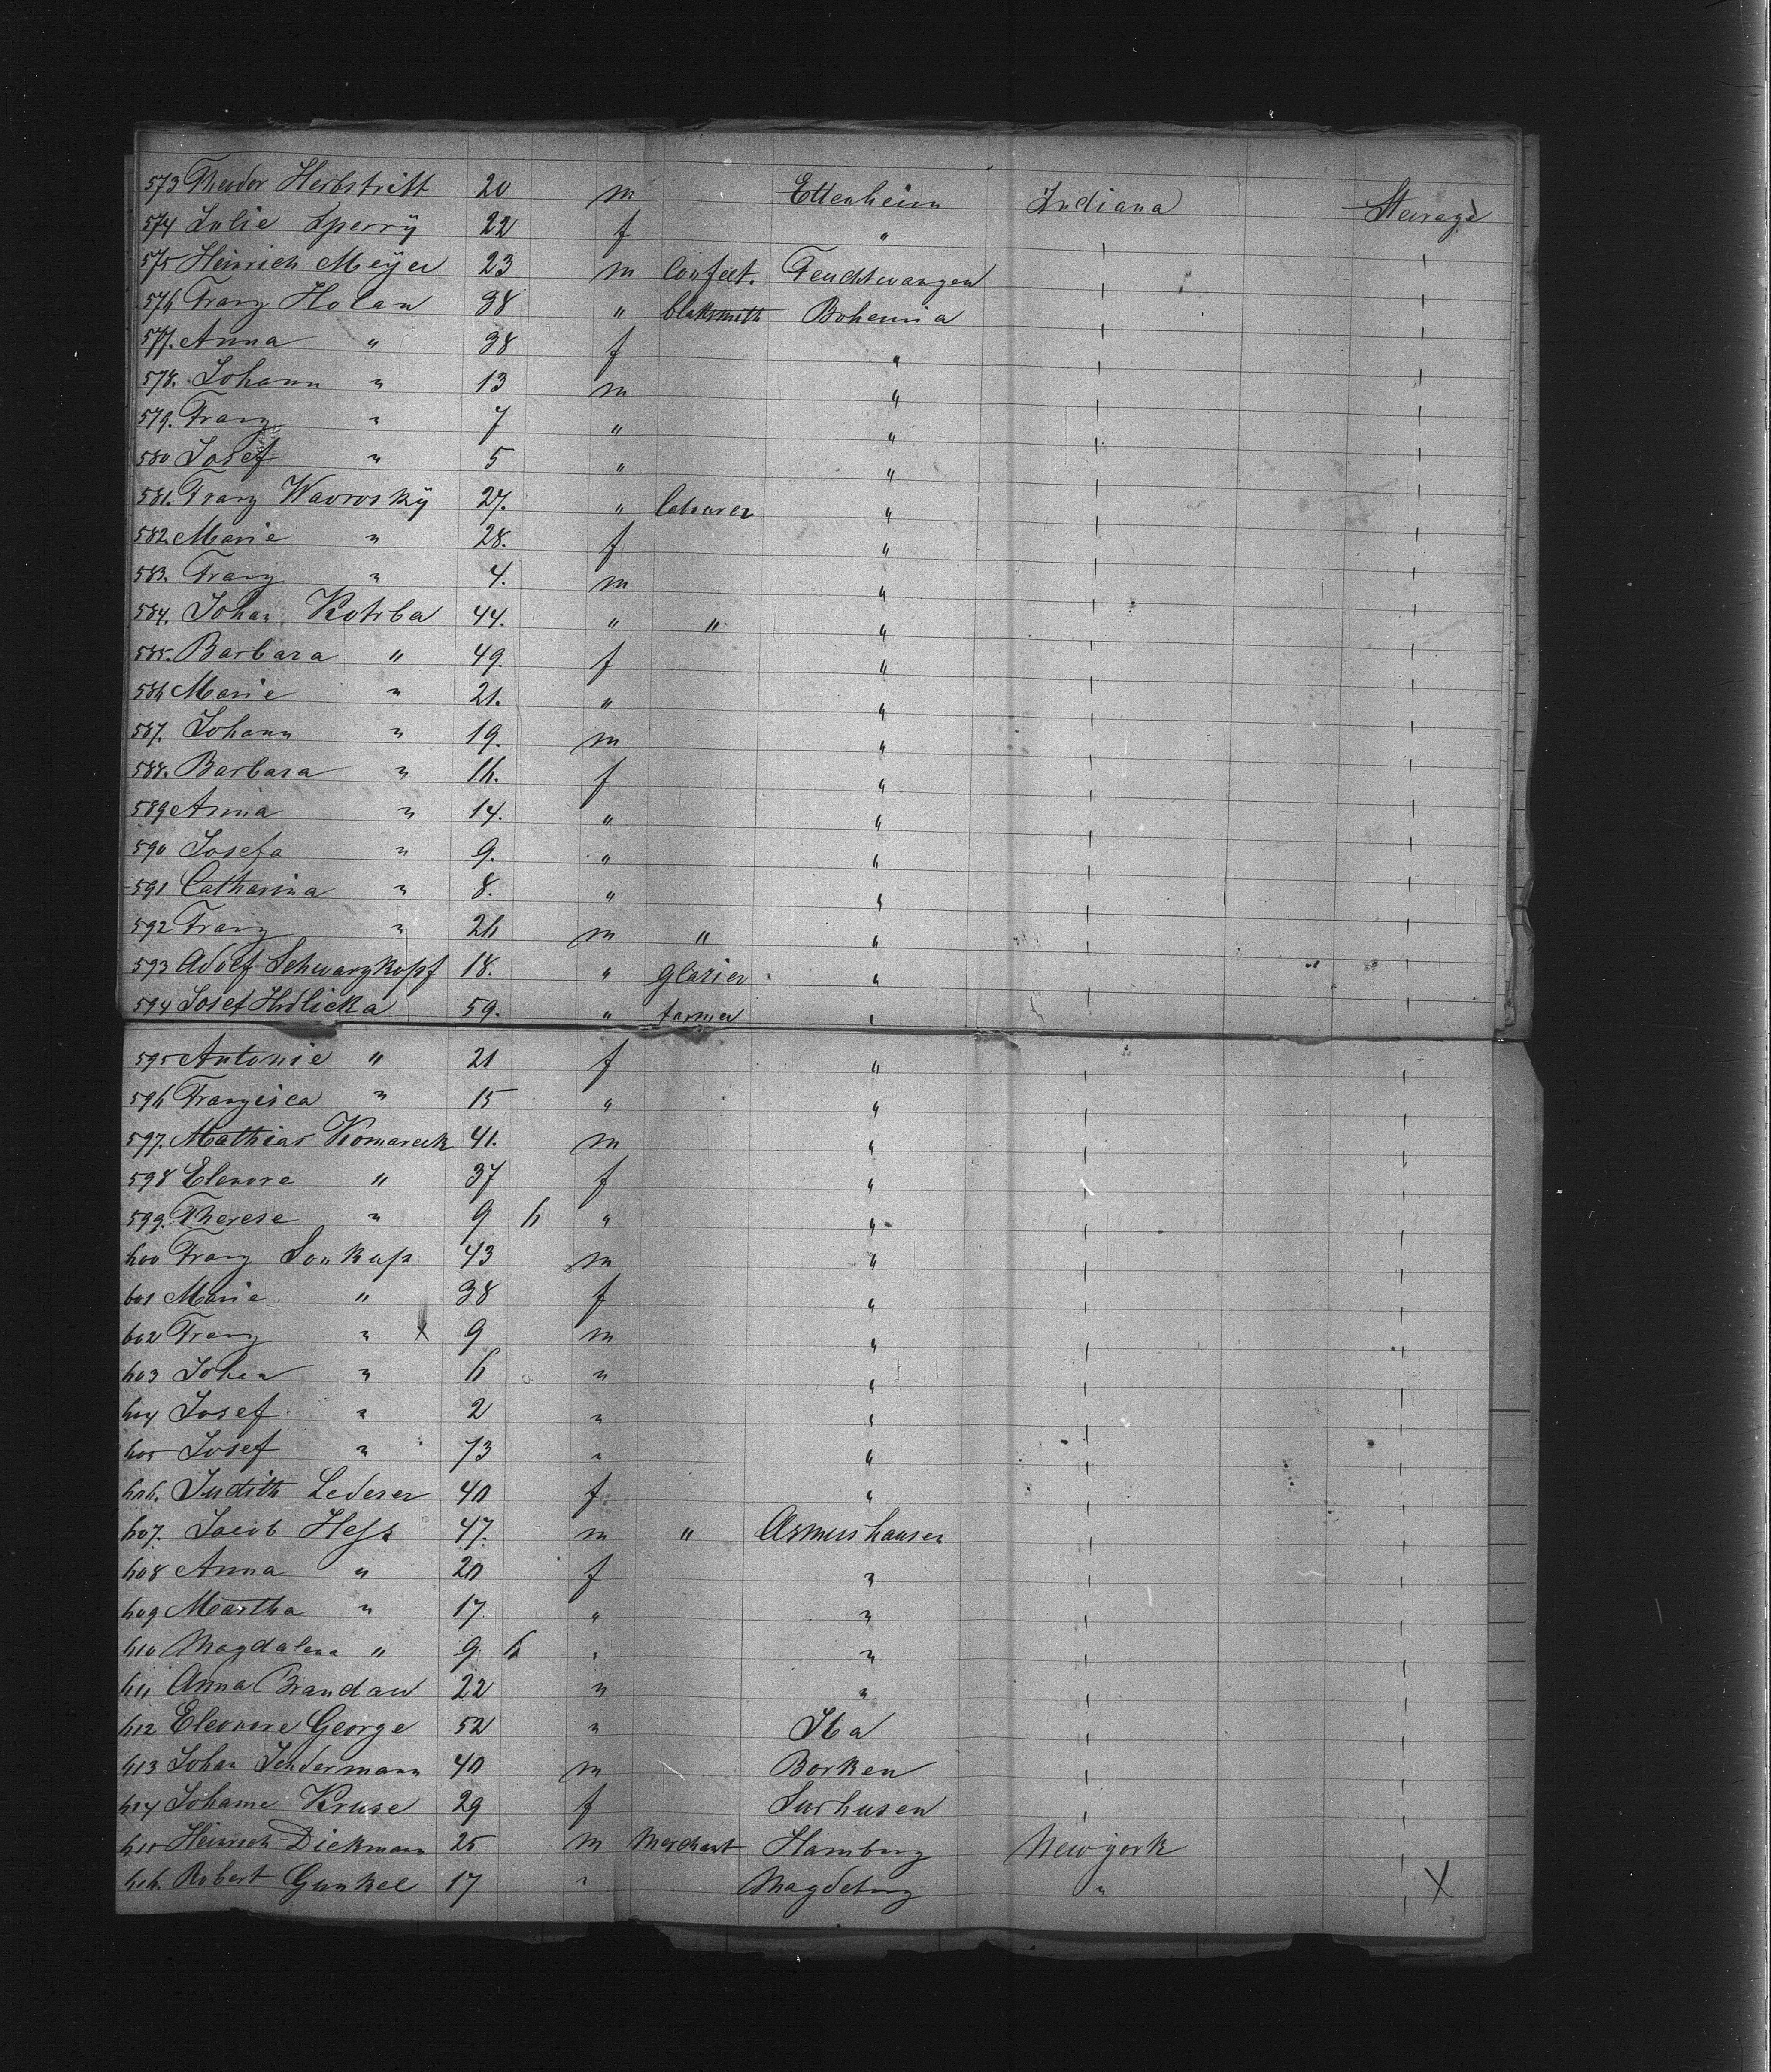 573 Theodor Herbstritt 20 m Ettenheim Indiana Steerage
574 Julie Sperrÿ 22 f "
575 Heinrich Meÿer 23 m Confect. Feuchtwangen
576 Franz Holan 38 " blaksmith Bohemia
577. Anna " 38 f "
578. Johann " 13 m "
579. Franz " 7 " "
580 Josef " 5 " "
581. Franz Wavroskÿ 27. " labourer "
582. Marie " 28. f "
583. Franz " 4. m "
584. Johan Kotrba 44. " " "
585. Barbara " 49. f "
586 Marie " 21. " "
587. Johann " 19. m "
588. Barbara " 16. f "
589 Anna " 14. " "
590 Josefa " 9. " "
591 Catharina " 8. " "
592 Franz " 26 m " "
593 Adolf Schwarzkopf 18. " glazier "
594 Josef Hrdlicka 59. " farmer "
595 Antonie " 21 f "
596 Franzisca " 15 " "
597. Mathias Komareck 41. m "
598 Elenore " 37 f "
599. Therese " 9 6 " "
600 Franz Soukup 43 m "
601 Marie " 38 f "
602 Franz " X 9 m "
603 Johan " 6 " "
604 Josef " 2 " "
605 Josef " 73 " "
606. Judith Lederer 40 f "
607. Jacob Hess 47. m " Asmushausen
608 Anna " 20 f "
609 Martha " 17. " "
610 Magdalena " 9 6 " "
611 Anna Brandau 22 " "
612 Eleonore George 52 " Iba
613 Johan 40 m Borken
614 Johanne Kruse 29 f Surhusen
615 Heinrich Dickmann 25 m Merchant Hamburg Newyork
616. Robert Gunkel 17 " Magdeburg " X